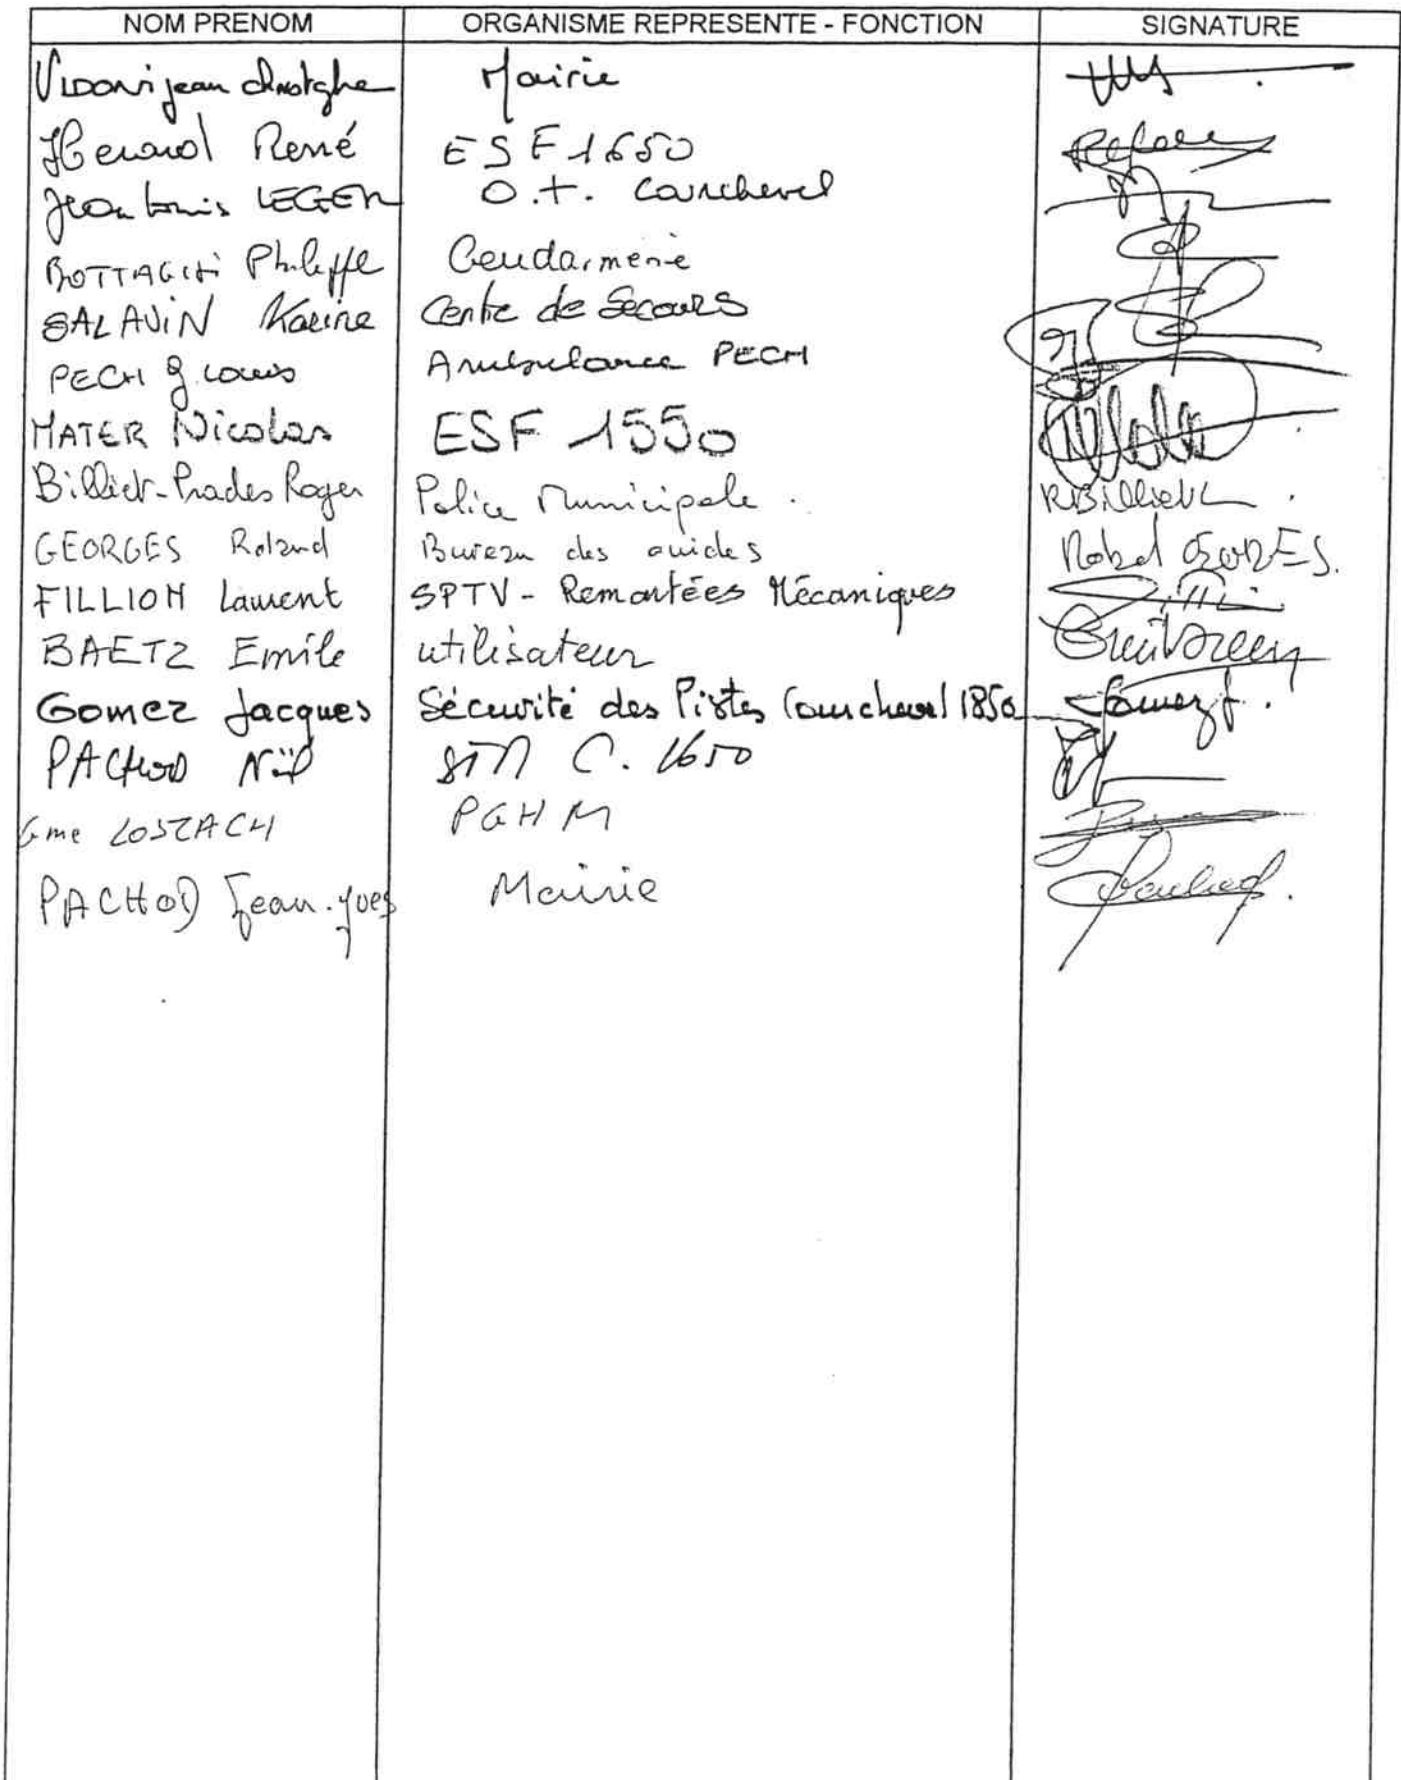 NOM PRENOM ORGANISME REPRESENTE - FONCTION SIGNATURE
VIDONI jean christophe Mairie
René ESF 1650
Jean Louis LEGER O.T. Courchevel
BOTTAGISI Philippe Gendarmerie
SALAVIN Karine Centre de Secours
PECH J. Louis Ambulance PECH
MATER Nicolas ESF 1550
Billiet-Prades Roger Police Municipale. RBilliet
GEORGES Roland Bureau des guides Roland GEORGES.
FILLION Laurent SPTV - Remontées Mécaniques
BAETZ Emile utilisateur
Gomez Jacques Sécurité des Pistes Courchevel 1850 Gomez J.
PACHOD C. 1650
Gme LOSZACH PGHM
PACHOD Jean-Yves Mairie Pachod.